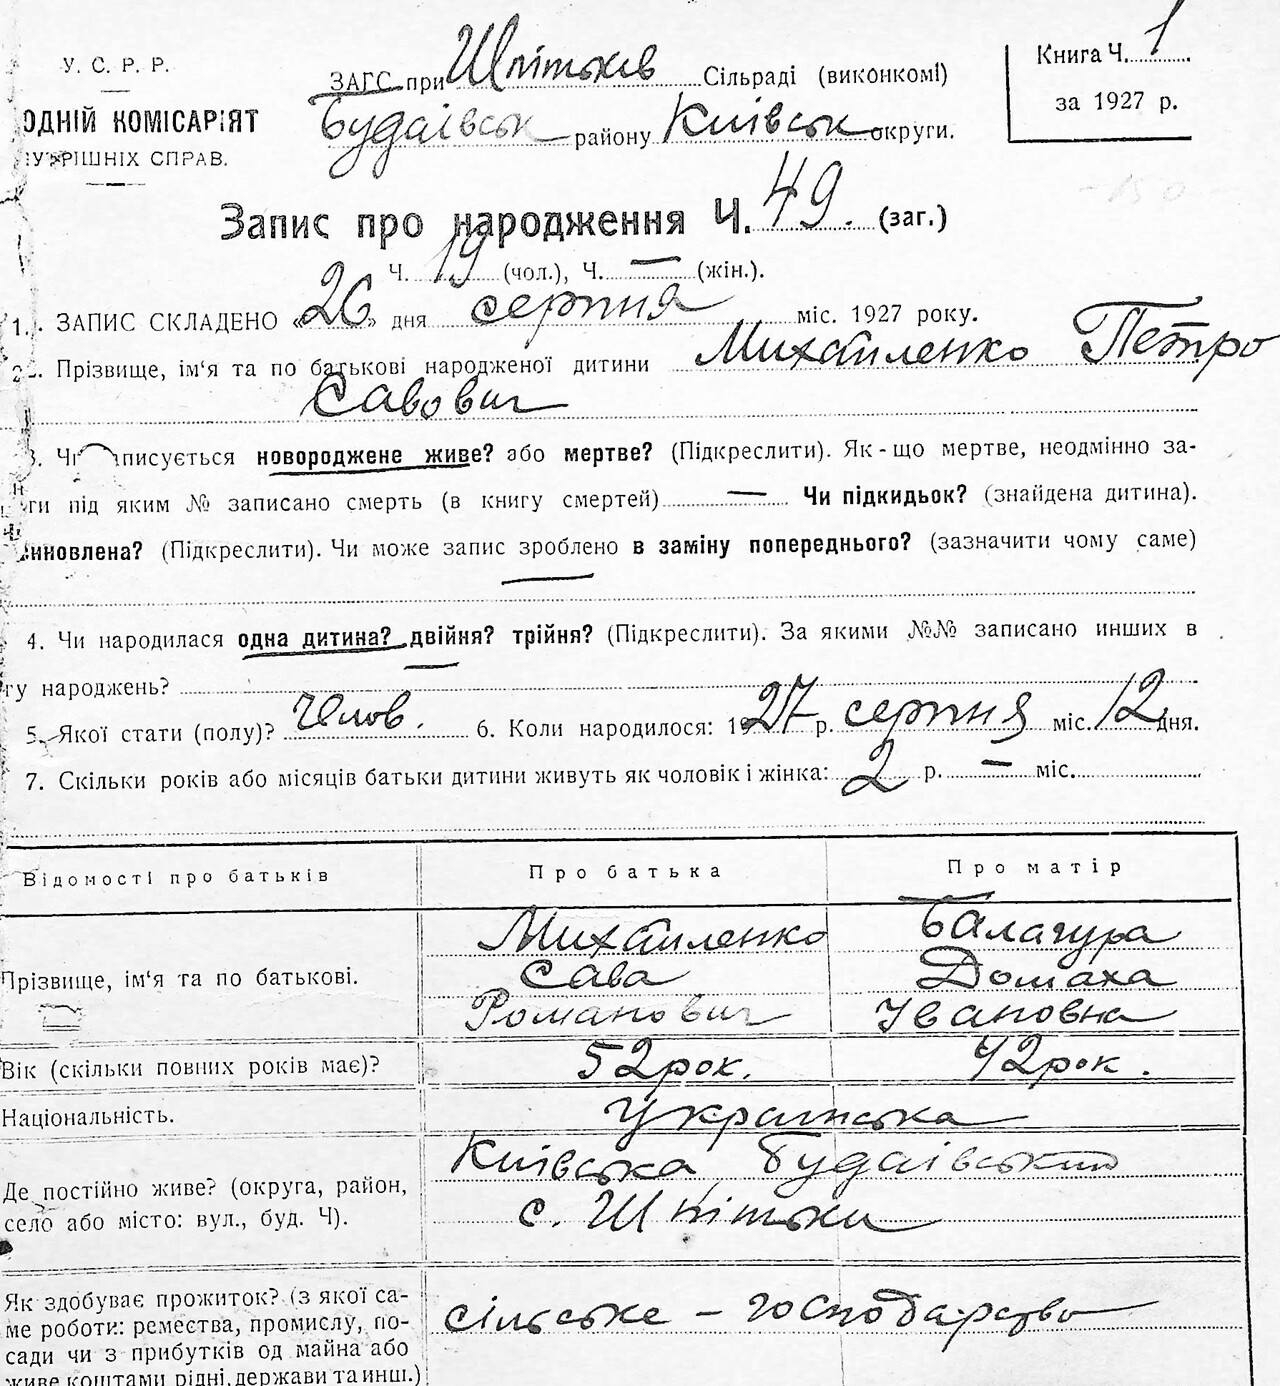 У. С. Р. Р.
ОДНІЙ КОМІСАРІЯТ
УТРІШНІХ СПРАВ.
ЗАГС при Шпітьків Сільраді (виконкомі)
Будаівськ району Київськ округи.
Книга Ч. 1
за 1927 р.
Запис про народження Ч. 49. (заг.)
Ч. 19 (чол.), Ч. — (жін.).
1. ЗАПИС СКЛАДЕНО «26» дня серпня міс. 1927 року.
2. Прізвище, ім'я та по батькові народженої дитини Михайленко Петро
Савович
3. Чи записується новороджене живе? або мертве? (Підкреслити). Як-що мертве, неодмінно за-
ги під яким № записано смерть (в книгу смертей) — Чи підкидьок? (знайдена дитина).
иновлена? (Підкреслити). Чи може запис зроблено в заміну попереднього? (зазначити чому саме)
—
4. Чи народилася одна дитина? двійня? трійня? (Підкреслити). За якими №№ записано инших в
гу народжень? —
5. Якої стати (полу)? Челов. 6. Коли народилося: 1927 р. серпня міс. 12 дня.
7. Скільки років або місяців батьки дитини живуть як чоловік і жінка: 2 р. — міс.
Відомості про батьків Про батька Про матір
Прізвище, ім'я та по батькові. Михайленко Сава Романович Балагура Домаха Івановна
Вік (скільки повних років має)? 52 рок. 42 рок.
Національність. Українська
Де постійно живе? (округа, район, Київська Будаівський
село або місто: вул., буд. Ч). с. Шпітьки
Як здобуває прожиток? (з якої са- сільське - господарство
ме роботи: ремества, промислу, по-
сади чи з прибутків од майна або
живе коштами рідні, держави та инш.)